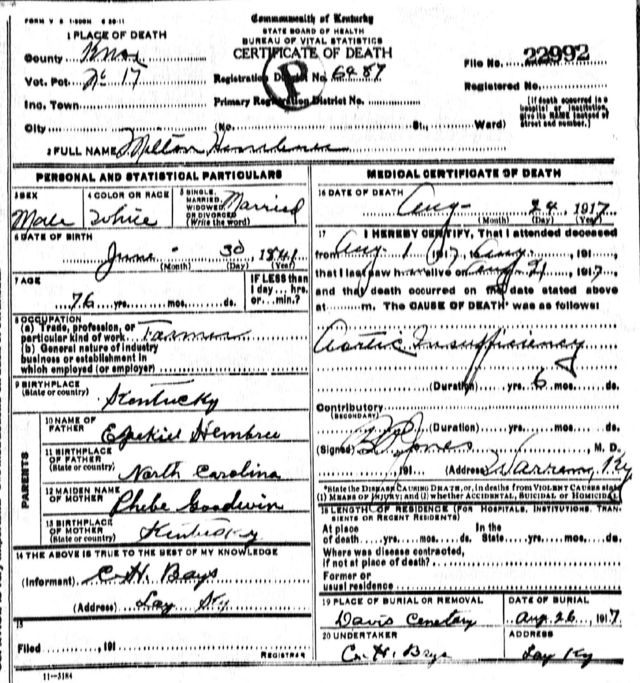 FORM V S 1-500M 6 20-11
Commonwealth of Kentucky
STATE BOARD OF HEALTH
BUREAU OF VITAL STATISTICS
CERTIFICATE OF DEATH
1 PLACE OF DEATH
County Knox
Vot. Pct. No 17
Inc. Town
City (No. St., Ward)
Registration District No. 6287
Primary Registration District No.
P
File No. 22992
Registered No.
(If death occurred in a hospital or institution, give its NAME instead of street and number.)
2 FULL NAME Milton Hembree
PERSONAL AND STATISTICAL PARTICULARS
3 SEX Male
4 COLOR OR RACE White
5 SINGLE, MARRIED, WIDOWED OR DIVORCED (Write the word) Married
6 DATE OF BIRTH
June - 30, 1841
(Month) (Day) (Year)
7 AGE
76 yrs. mos. ds.
IF LESS than 1 day... hrs. or... min.?
8 OCCUPATION
(a) Trade, profession, or particular kind of work Farmer
(b) General nature of industry business or establishment in which employed (or employer)
9 BIRTHPLACE (State or country) Kentucky
PARENTS
10 NAME OF FATHER Ezekiel Hembree
11 BIRTHPLACE OF FATHER (State or country) North Carolina
12 MAIDEN NAME OF MOTHER Phebe Goodwin
13 BIRTHPLACE OF MOTHER (State or country) Kentucky
14 THE ABOVE IS TRUE TO THE BEST OF MY KNOWLEDGE
(Informant) C. H. Bays
(Address) Lay Ky
15
Filed, 191
REGISTRAR
11-3184
MEDICAL CERTIFICATE OF DEATH
16 DATE OF DEATH
Aug - 24, 1917
(Month) (Day) (Year)
17 I HEREBY CERTIFY, That I attended deceased
from Aug 1, 1917, Aug, 191
that I last saw h alive on Aug 21, 1917
and that death occurred on the date stated above
at m. The CAUSE OF DEATH* was as follows:
Aortic Insufficiency
(Duration) yrs. 6 mos. ds.
Contributory (SECONDARY)
(Duration) yrs. mos. ds.
(Signed) Jones, M. D.
, 191 (Address) Warren, Ky
*State the DISEASE CAUSING DEATH, or, in deaths from VIOLENT CAUSES state (1) MEANS OF INJURY; and (2) whether ACCIDENTAL, SUICIDAL or HOMICIDAL
18 LENGTH OF RESIDENCE (FOR HOSPITALS, INSTITUTIONS, TRANSIENTS OR RECENT RESIDENTS)
At place of death yrs. mos. ds. In the State yrs. mos. ds.
Where was disease contracted, if not at place of death?
Former or usual residence
19 PLACE OF BURIAL OR REMOVAL
Davis Cemetary
DATE OF BURIAL
Aug. 26, 1917
20 UNDERTAKER
C. H. Bays
ADDRESS
Lay Ky